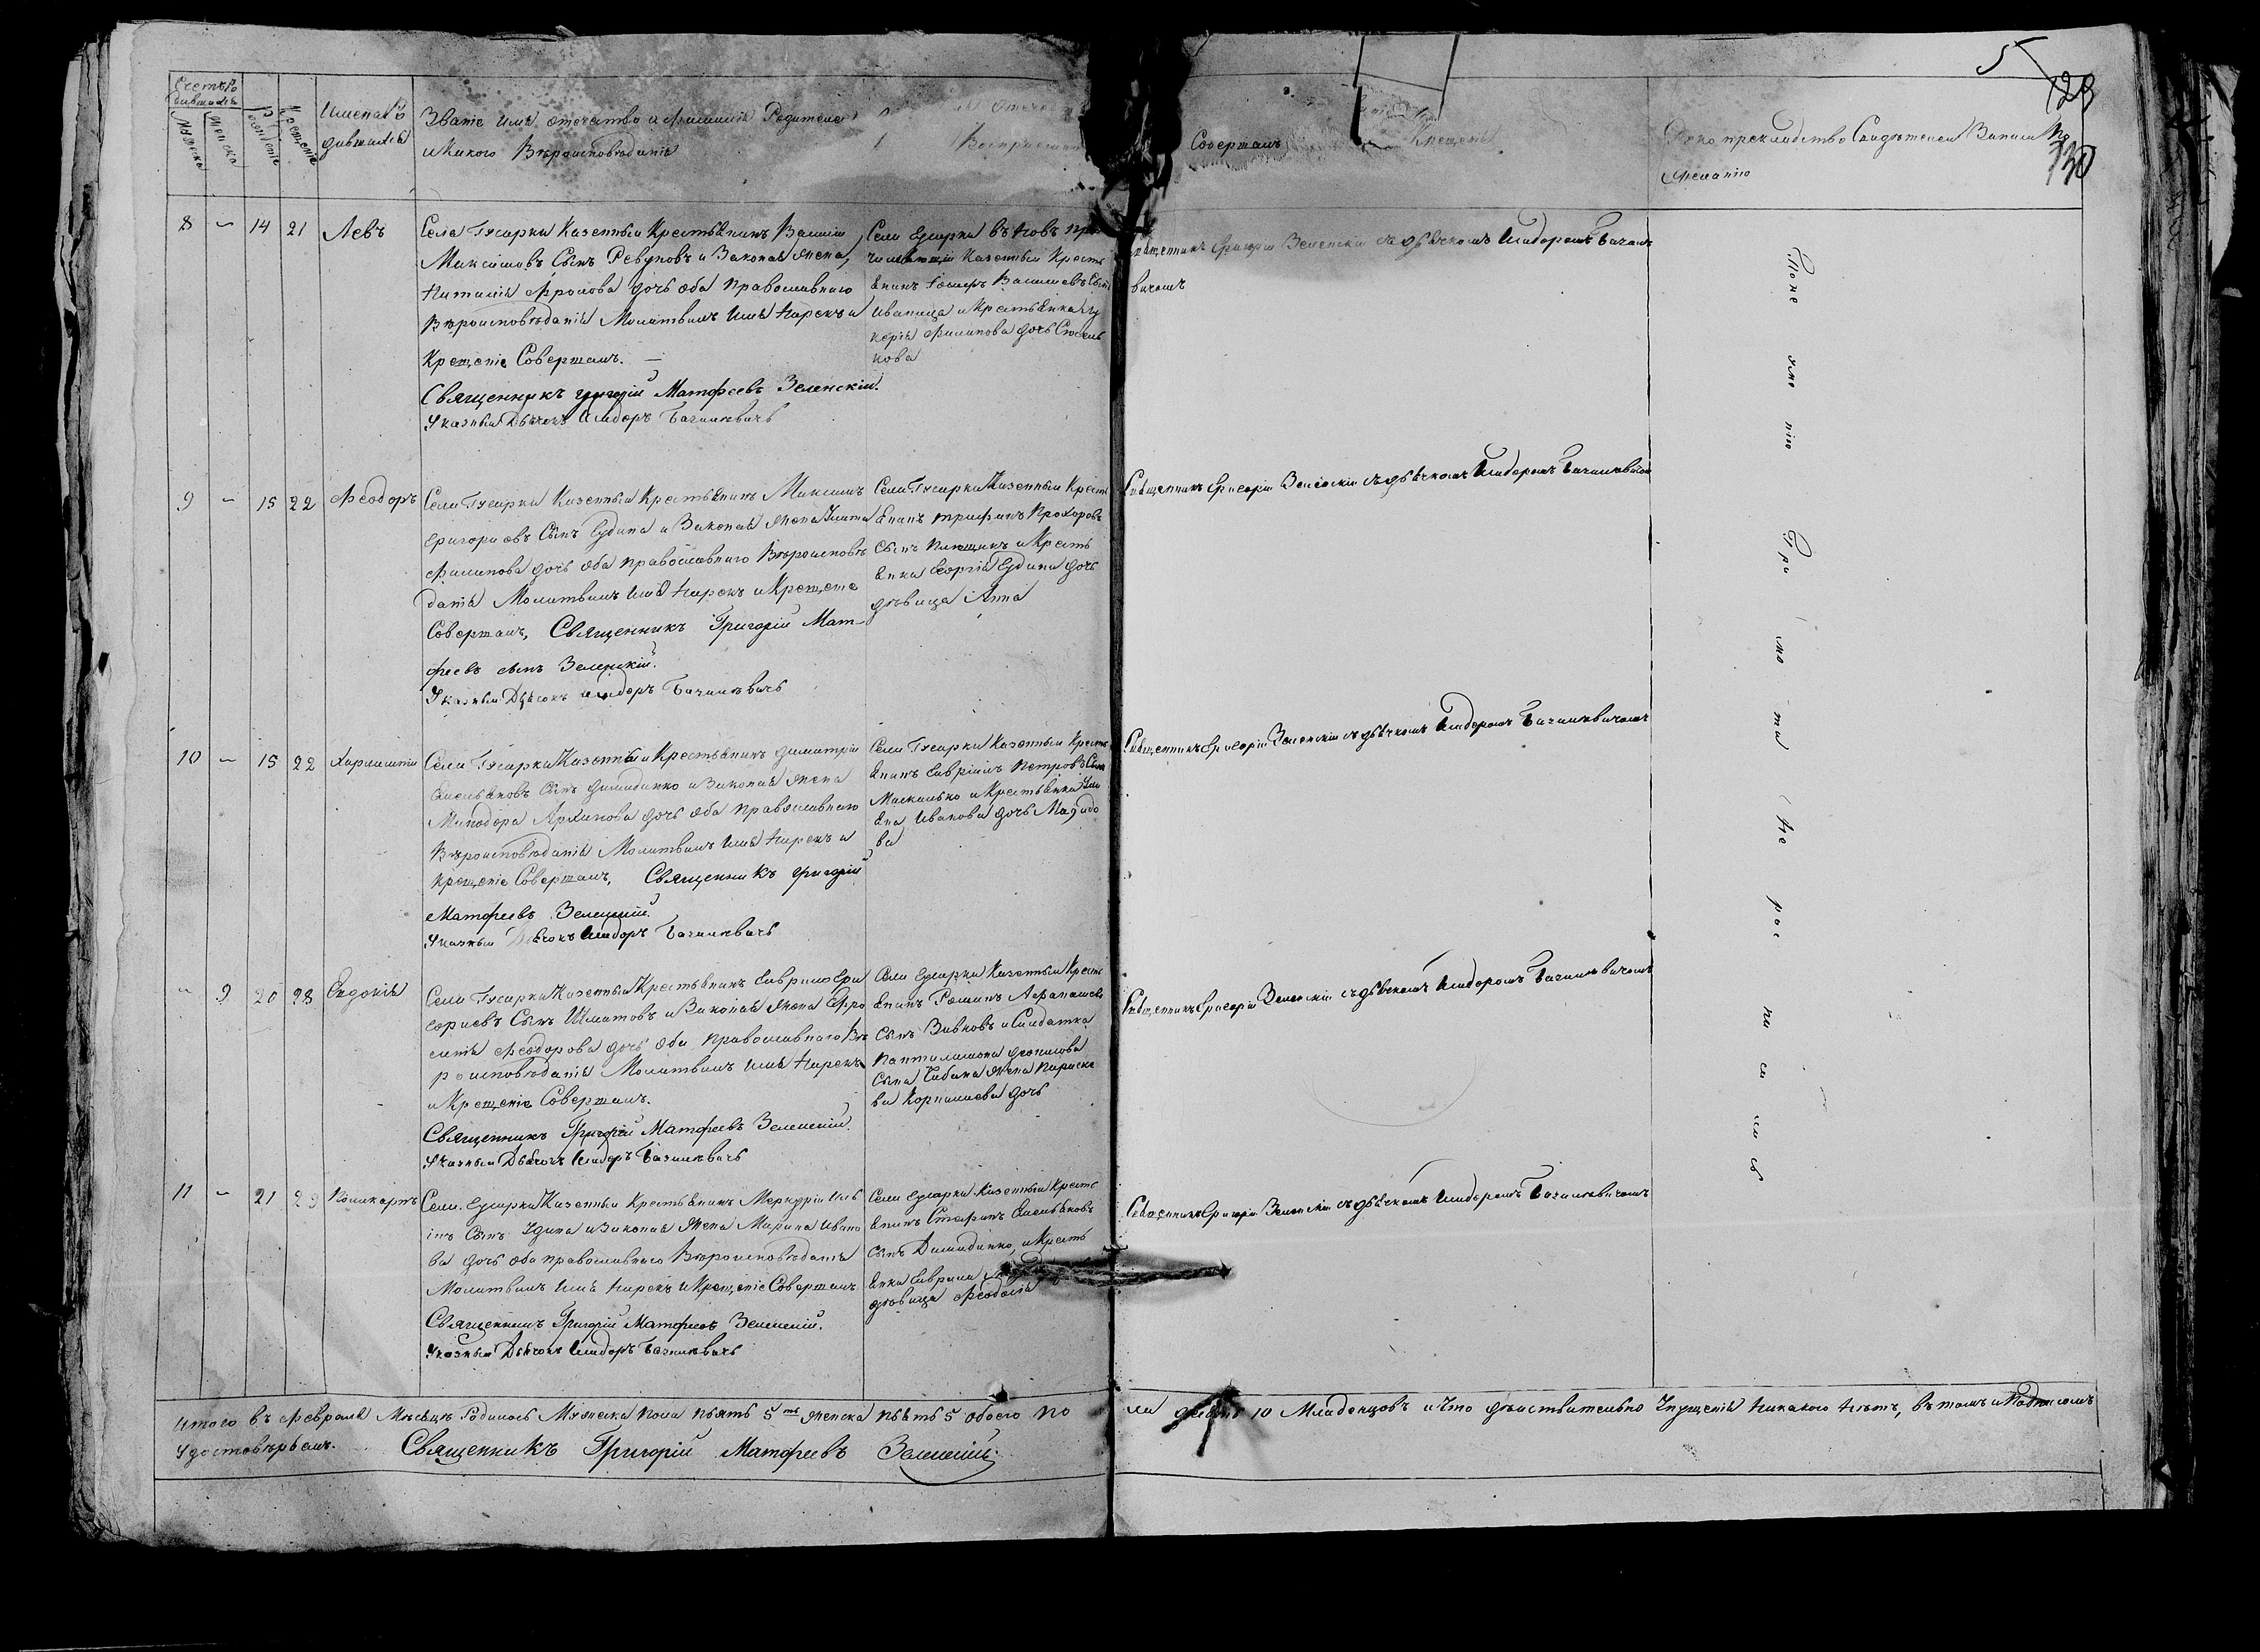 5
129
130
Счетъ Ро
дившихся
Мужеска
Женска
Рожденіе
Крещеніе
Имена Ро
дившихся
Званіе имя отечество и Фамилія Родителей
и Какого Вѣроисповѣданія
Совершалъ
Крещеніе
Рукоприкладство Свидѣтелей Записи по
Желанію
8 — 14 21 Левъ
Села Гусарки Казенный Крестьянинъ Василій
Максимовъ Сынъ Ревуновъ и Законая Жена,
Наталія Фролова дочь оба Православнаго
Вѣроисповѣданія Молитвилъ имя Нарекъ и
Крещеніе Совершалъ. —
Священникъ Григорій Матфеевъ Зеленскій.
Указный Дьячокъ Исидоръ Бачинѣвичь
Села Гусарки въ Новъ при
числяющій Казенный Кресть
янинъ Іосифъ Василіевъ Сынъ
Иваница и Крестьянка Лу
керія Филипова дочь
кова
Священникъ Григорій Зеленскій съ дьячкомъ Исидоромъ Бачинѣ
вичомъ
9 — 15 22 Феодоръ
Села Гусарки Казенный Крестьянинъ Максимъ
Григоріевъ Сынъ Гудина и Законая Жена
Филипова дочь оба Православнаго Вѣроисповѣ
данія Молитвилъ имя Нарекъ и Крещеніе
Совершалъ, Священникъ Григорій Мат-
феевъ сынъ Зеленскій.
Указный Дьячокъ Исидоръ Бачинѣвичь
Села Гусарки Казенный Кресть
янинъ Трифанъ Прохоровъ
Сынъ и Кресть
янина Георгія Гудины дочь
дѣвица Анна
Священникъ Григорій Зеленскій съ дьячкомъ Исидоромъ Бачинѣвичомъ
10 — 15 22 Харлампій
Села Гусарки Казенный Крестьянинъ Димитрій
Емельяновъ Сынъ Димидинко и Законая Жена
Минодора Архипова дочь оба Православнаго
Вѣроисповѣданія Молитвилъ имя Нарекъ и
Крещеніе Совершалъ, Священникъ Григорій
Матфеевъ Зеленскій.
Указный Дьячокъ Исидоръ Бачинѣвичь
Села Гусарки Казенный Кресть
янинъ Гавріилъ Петровъ Сынъ
и Крестьянка Ули
яна Иванова дочь
ва
Священникъ Григорій Зеленскій съ дьячкомъ Исидоромъ Бачинѣвичомъ
— 9 20 28 Евдокія
Села Гусарки Казенный Крестьянинъ Гаврило Гри
горіевъ Сынъ и Законая Жена Ефро
синія Феодорова дочь оба Православнаго Вѣ
роисповѣданія Молитвилъ имя Нарекъ
и Крещеніе Совершалъ.
Священникъ Григорій Матфеевъ Зеленскій.
Указный Дьячокъ Исидоръ Бачинѣвичь
Села Гусарки Казенный Кресть
янинъ Романъ Афанасіевъ
Сынъ и Салдатка
Пантилимона
Сына Жена Параске
ва Корнилиева дочь
Священникъ Григорій Зеленскій съ дьячкомъ Исидоромъ Бачинѣвичомъ
11 — 21 29 Поликарпъ
Села Гусарки Казенный Крестьянинъ Меркурій Иль
інъ Сынъ Гудина и Законая Жена Марина Ивано
ва дочь оба православнаго Вѣроисповѣданія
Молитвилъ имя Нарекъ и Крещеніе Совершалъ
Священникъ Григорій Матфеевъ Зеленскій.
Указный Дьячокъ Исидоръ Бачинѣвичь
Села Гусарки Казенный Кресть
янинъ Стефанъ Емельяновъ
Сынъ Димидинко, и Кресть
янина Гаврила
дѣвица Феодосія
Священникъ Григорій Зеленскій съ дьячкомъ Исидоромъ Бачинѣвичомъ
По не умѣ нію Гра мо та не рос пи са лись
Итого въ Февралѣ Мѣсяцѣ Родилось Мужеска Пола Пять 5 Женска Пять 5 обоего По
ла 10 Младенцовъ и Что дѣйствительно Упущенія Никакого Нѣтъ, въ томъ и Подписомъ
Удостовѣряемъ. Священникъ Григорій Матфеевъ Зеленскій.